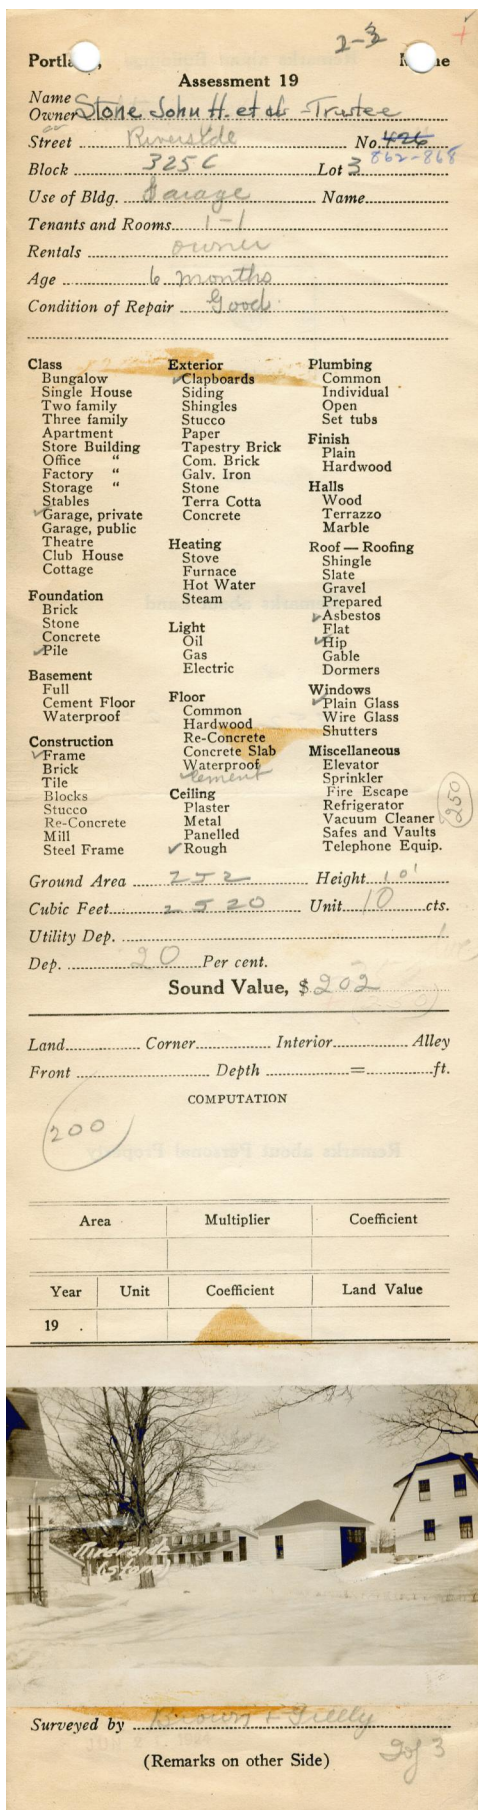 2-3
+
Portla , M ne
Assessment 19
Name or Owner Stone John H. et al - Trustee
Street Riverside No. 426
862-868
Block 325 C Lot 3
Use of Bldg. Garage Name
Tenants and Rooms 1-1
Rentals owner
Age 6 months
Condition of Repair Good
Class
Bungalow
Single House
Two family
Three family
Apartment
Store Building
Office "
Factory "
Storage "
Stables
✓Garage, private
Garage, public
Theatre
Club House
Cottage
Foundation
Brick
Stone
Concrete
✓Pile
Basement
Full
Cement Floor
Waterproof
Construction
✓Frame
Brick
Tile
Blocks
Stucco
Re-Concrete
Mill
Steel Frame
Exterior
✓Clapboards
Siding
Shingles
Stucco
Paper
Tapestry Brick
Com. Brick
Galv. Iron
Stone
Terra Cotta
Concrete
Heating
Stove
Furnace
Hot Water
Steam
Light
Oil
Gas
Electric
Floor
Common
Hardwood
Re-Concrete
Concrete Slab
Waterproof
✓cement
Ceiling
Plaster
Metal
Panelled
✓Rough
Plumbing
Common
Individual
Open
Set tubs
Finish
Plain
Hardwood
Halls
Wood
Terrazzo
Marble
Roof — Roofing
Shingle
Slate
Gravel
Prepared
✓Asbestos
Flat
✓Hip
Gable
Dormers
Windows
✓Plain Glass
Wire Glass
Shutters
Miscellaneous
Elevator
Sprinkler
Fire Escape
Refrigerator
Vacuum Cleaner
Safes and Vaults
Telephone Equip.
250
Ground Area 252 Height 10'
Cubic Feet 2520 Unit 10 cts.
Utility Dep.
Dep. 20 Per cent.
Sound Value, $ 202
Land Corner Interior Alley
Front Depth = ft.
COMPUTATION
200
Area Multiplier Coefficient
Year Unit Coefficient Land Value
19
Riverside
(Stone)
Surveyed by Brown &
(Remarks on other Side)
2 of 3